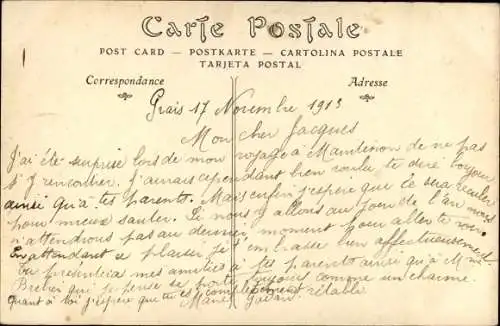 Carte Postale
POST CARD — POSTKARTE — CARTOLINA POSTALE
TARJETA POSTAL
Correspondance
Adresse
17 Novembre 1913
Mon cher Jacques
J'ai été surprise lors de mon voyage à Maintenon de ne pas
t'y rencontrer. J'aurais cependant bien voulu te dire bonjour
ainsi qu'à tes parents. Mais enfin j'espère que ce sera reculer
pour mieux sauter. Si nous y allons au jour de l'an nous
n'attendrons pas au dernier moment pour aller te voir.
En attendant ce plaisir je t'embrasse bien affectueusement
Tu présentera mes amitiés à tes parents ainsi qu'à Mr
que je pense se porte toujours comme un charme.
Quant à toi j'espère que tu es complètement rétabli.
Marie